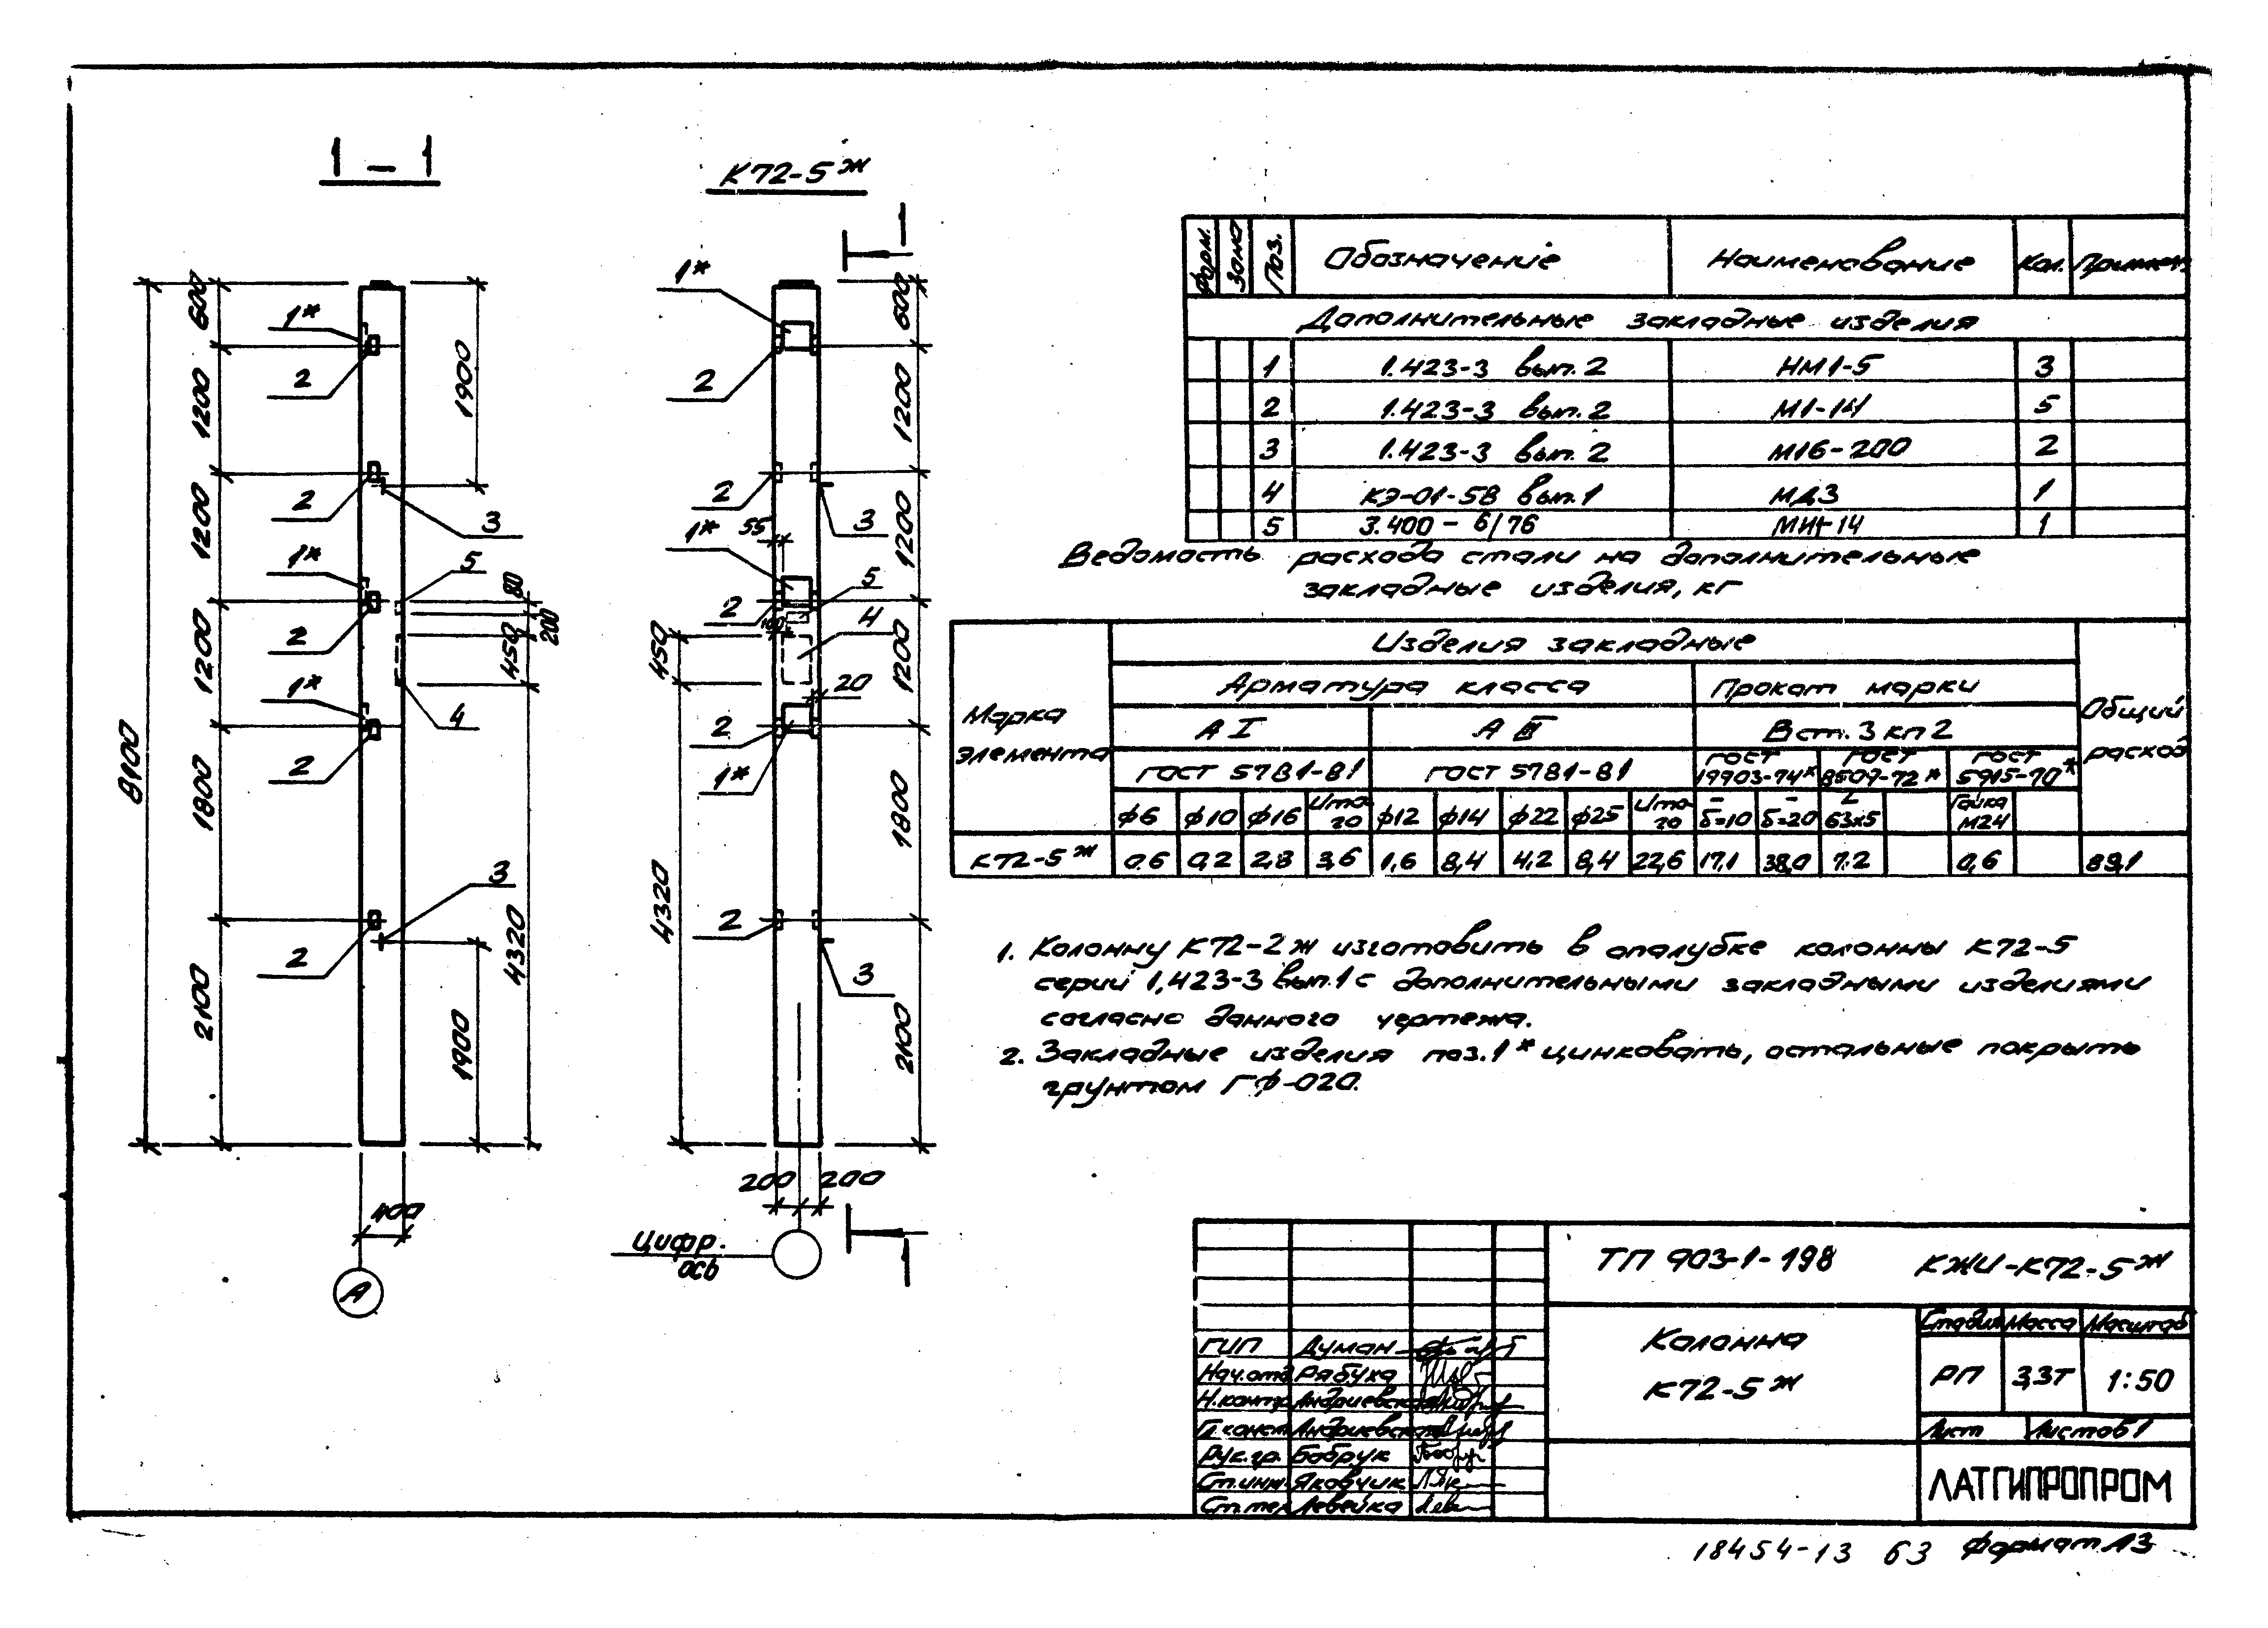 1 - 1
К72-5ж
8100
600
1200
1200
1200
1800
2100
1*
2
2
1*
2
1*
2
2
1900
3
5
80
200
450
4
3
4320
1900
400
А
1*
2
2
55
1*
2
100
450
2
1*
2
4320
3
5
4
20
3
600
1200
1200
1200
1800
2100
200 200
Цифр.
ось
1
1
Форм. Зона Поз. Обозначение Наименование Кол. Примеч.
Дополнительные закладные изделия
1 1.423-3 вып. 2 НМ1-5 3
2 1.423-3 вып. 2 М1-14 5
3 1.423-3 вып. 2 М16-200 2
4 КЭ-01-58 вып. 1 МД3 1
5 3.400 - 6/76 МИ1-14 1
Ведомость расхода стали на дополнительные
закладные изделия, кг
Марка элемента Изделия закладные Общий расход
Арматура класса Прокат марки
А I А III В ст. 3 кп 2
ГОСТ 5781-81 ГОСТ 5781-81 ГОСТ 19903-74* ГОСТ 8509-72* ГОСТ 5915-70*
ф6 ф10 ф16 Итого ф12 ф14 ф22 ф25 Итого б=10 б=20 63х5 Гайка М24
К72-5ж 0.6 0,2 2,8 3,6 1,6 8,4 4,2 8,4 22,6 17,1 38,0 7.2 0,6 89,1
1. Колонну К72-2ж изготовить в опалубке колонны К72-5
серии 1,423-3 вып.1 с дополнительными закладными изделиями
согласно данного чертежа.
2. Закладные изделия поз. 1* цинковать, остальные покрыть
грунтом ГФ-020.
ТП 903-1-198 КЖИ-К72-5ж
Колонна
К72-5ж
Стадия Масса Масштаб
РП 3,3т 1:50
Лист Листов 1
ЛАТГИПРОПРОМ
ГИП Думан
Нач.отд. Рябуха
Н.контр. Андриевская
Гл.конст. Андриевская
Рук.гр. Бобрук
Ст.инж. Яковчик
Ст.тех. Левейка
18454-13 63 Формат А3